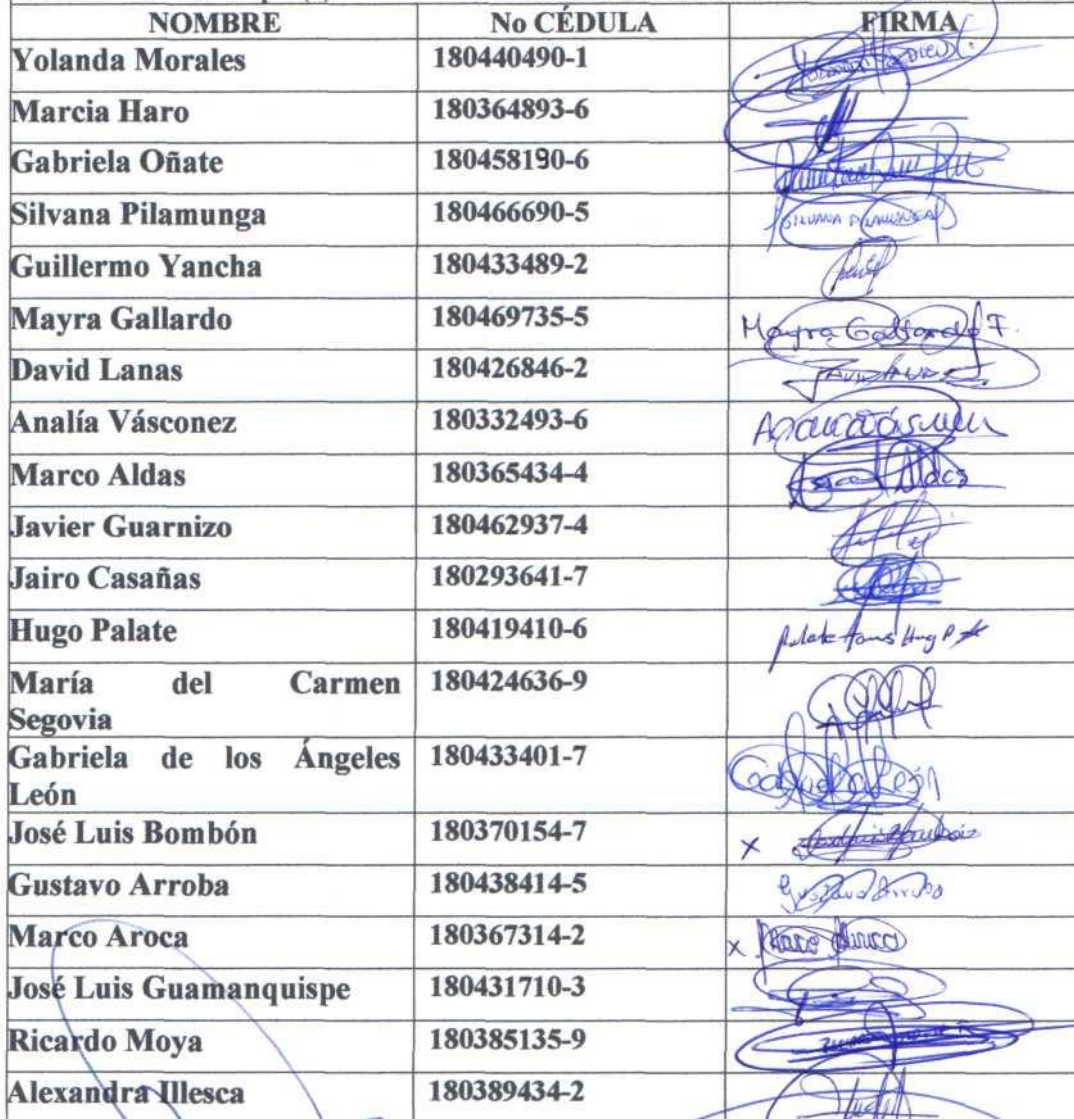 NOMBRE No CÉDULA FIRMA
Yolanda Morales 180440490-1
Marcia Haro 180364893-6
Gabriela Oñate 180458190-6
Silvana Pilamunga 180466690-5 SILVANA PILAMUNGA
Guillermo Yancha 180433489-2
Mayra Gallardo 180469735-5 Mayra Gallardo F.
David Lanas 180426846-2
Analía Vásconez 180332493-6
Marco Aldas 180365434-4
Javier Guarnizo 180462937-4
Jairo Casañas 180293641-7
Hugo Palate 180419410-6
María del Carmen 180424636-9
Segovia
Gabriela de los Ángeles 180433401-7 Gabriela León
León
José Luis Bombón 180370154-7 x
Gustavo Arroba 180438414-5 Gustavo Arroba
Marco Aroca 180367314-2 x
José Luis Guamanquispe 180431710-3
Ricardo Moya 180385135-9
Alexandra Illesca 180389434-2